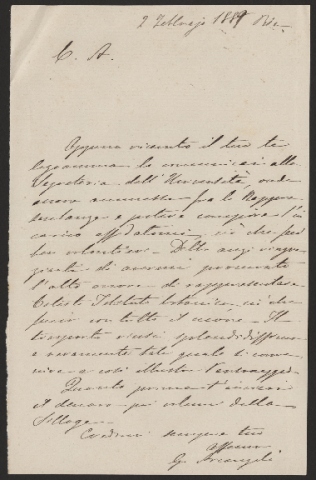 2 Febbrajo 1889 Pisa
C. A.
Appena ricevuto il tuo te
legramma lo comunicai alla
Segreteria dell' Università, onde
essere ammesso fra le Rappre
sentanze e potere compiere l'in
carico affidatomi, ciò che feci
ben volentieri. Debbo anzi ringra
ziarti di avermi procurato
l'alto onore di rappresentare
Codesto Istituto botanico, ciò che
feci con tutto il cuore. Il
trasporto riuscì splendidissimo
e veramente tale quale si conve
niva a così illustre
Quanto prima t'invierò
il denaro pei volumi della
Silloge.
Credimi sempre tuo
affmo
G. Arcangeli